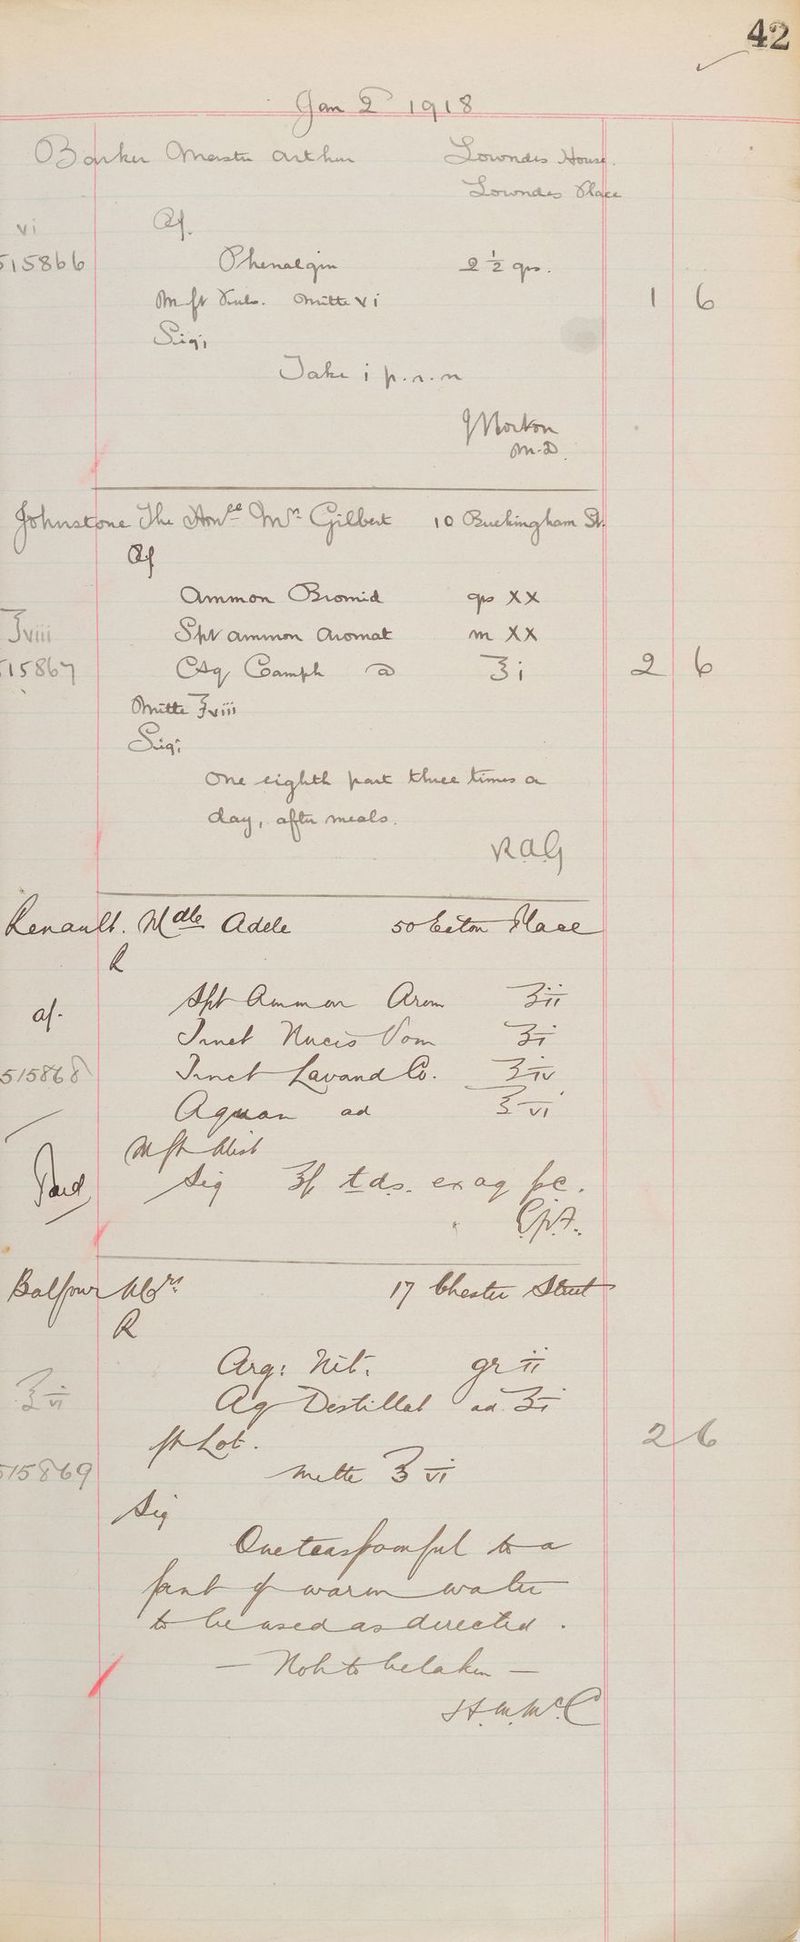 42
Jan 2 1918
Barker Master Arthur Lowndes House.
Lowndes Place
vi Rf.
515866 Phenalgin 2 1/2 grs.
M ft Pulv. Mitte vi 1 6
Sig;
Take i p.r.n
J Morton
M.D.
Johnstone The Honble Mrs Gilbert 10 Buckingham St.
Rf
Ammon Bromid grs XX
℥viii Spt Ammon Aromat m XX
515867 Aq Camph ad ℥i 2 6
Mitte ℥viii
Sig;
One eighth part three times a
day, after meals.
R.A.G
Renault. Mdlle Adele 50 Eaton Place
R
af. Spt Ammon Arom ʒii
Tinct Nucis Vom ʒi
515868 Tinct Lavand Co. ʒiv
Aquam ad ℥vi
M ft Mist
Paid Sig t.d.s. ex aq p.c.
Balfour Mrs 17 Chester Street
R
Arg: Nit. gr ii
℥vi Aq Destillat ad ℥i
ft Lot. 2 6
515869 Mitte ℥vi
Sig
One teaspoonful to a
pint of warm water
to be used as directed.
— Not to be taken —
H.M.McC